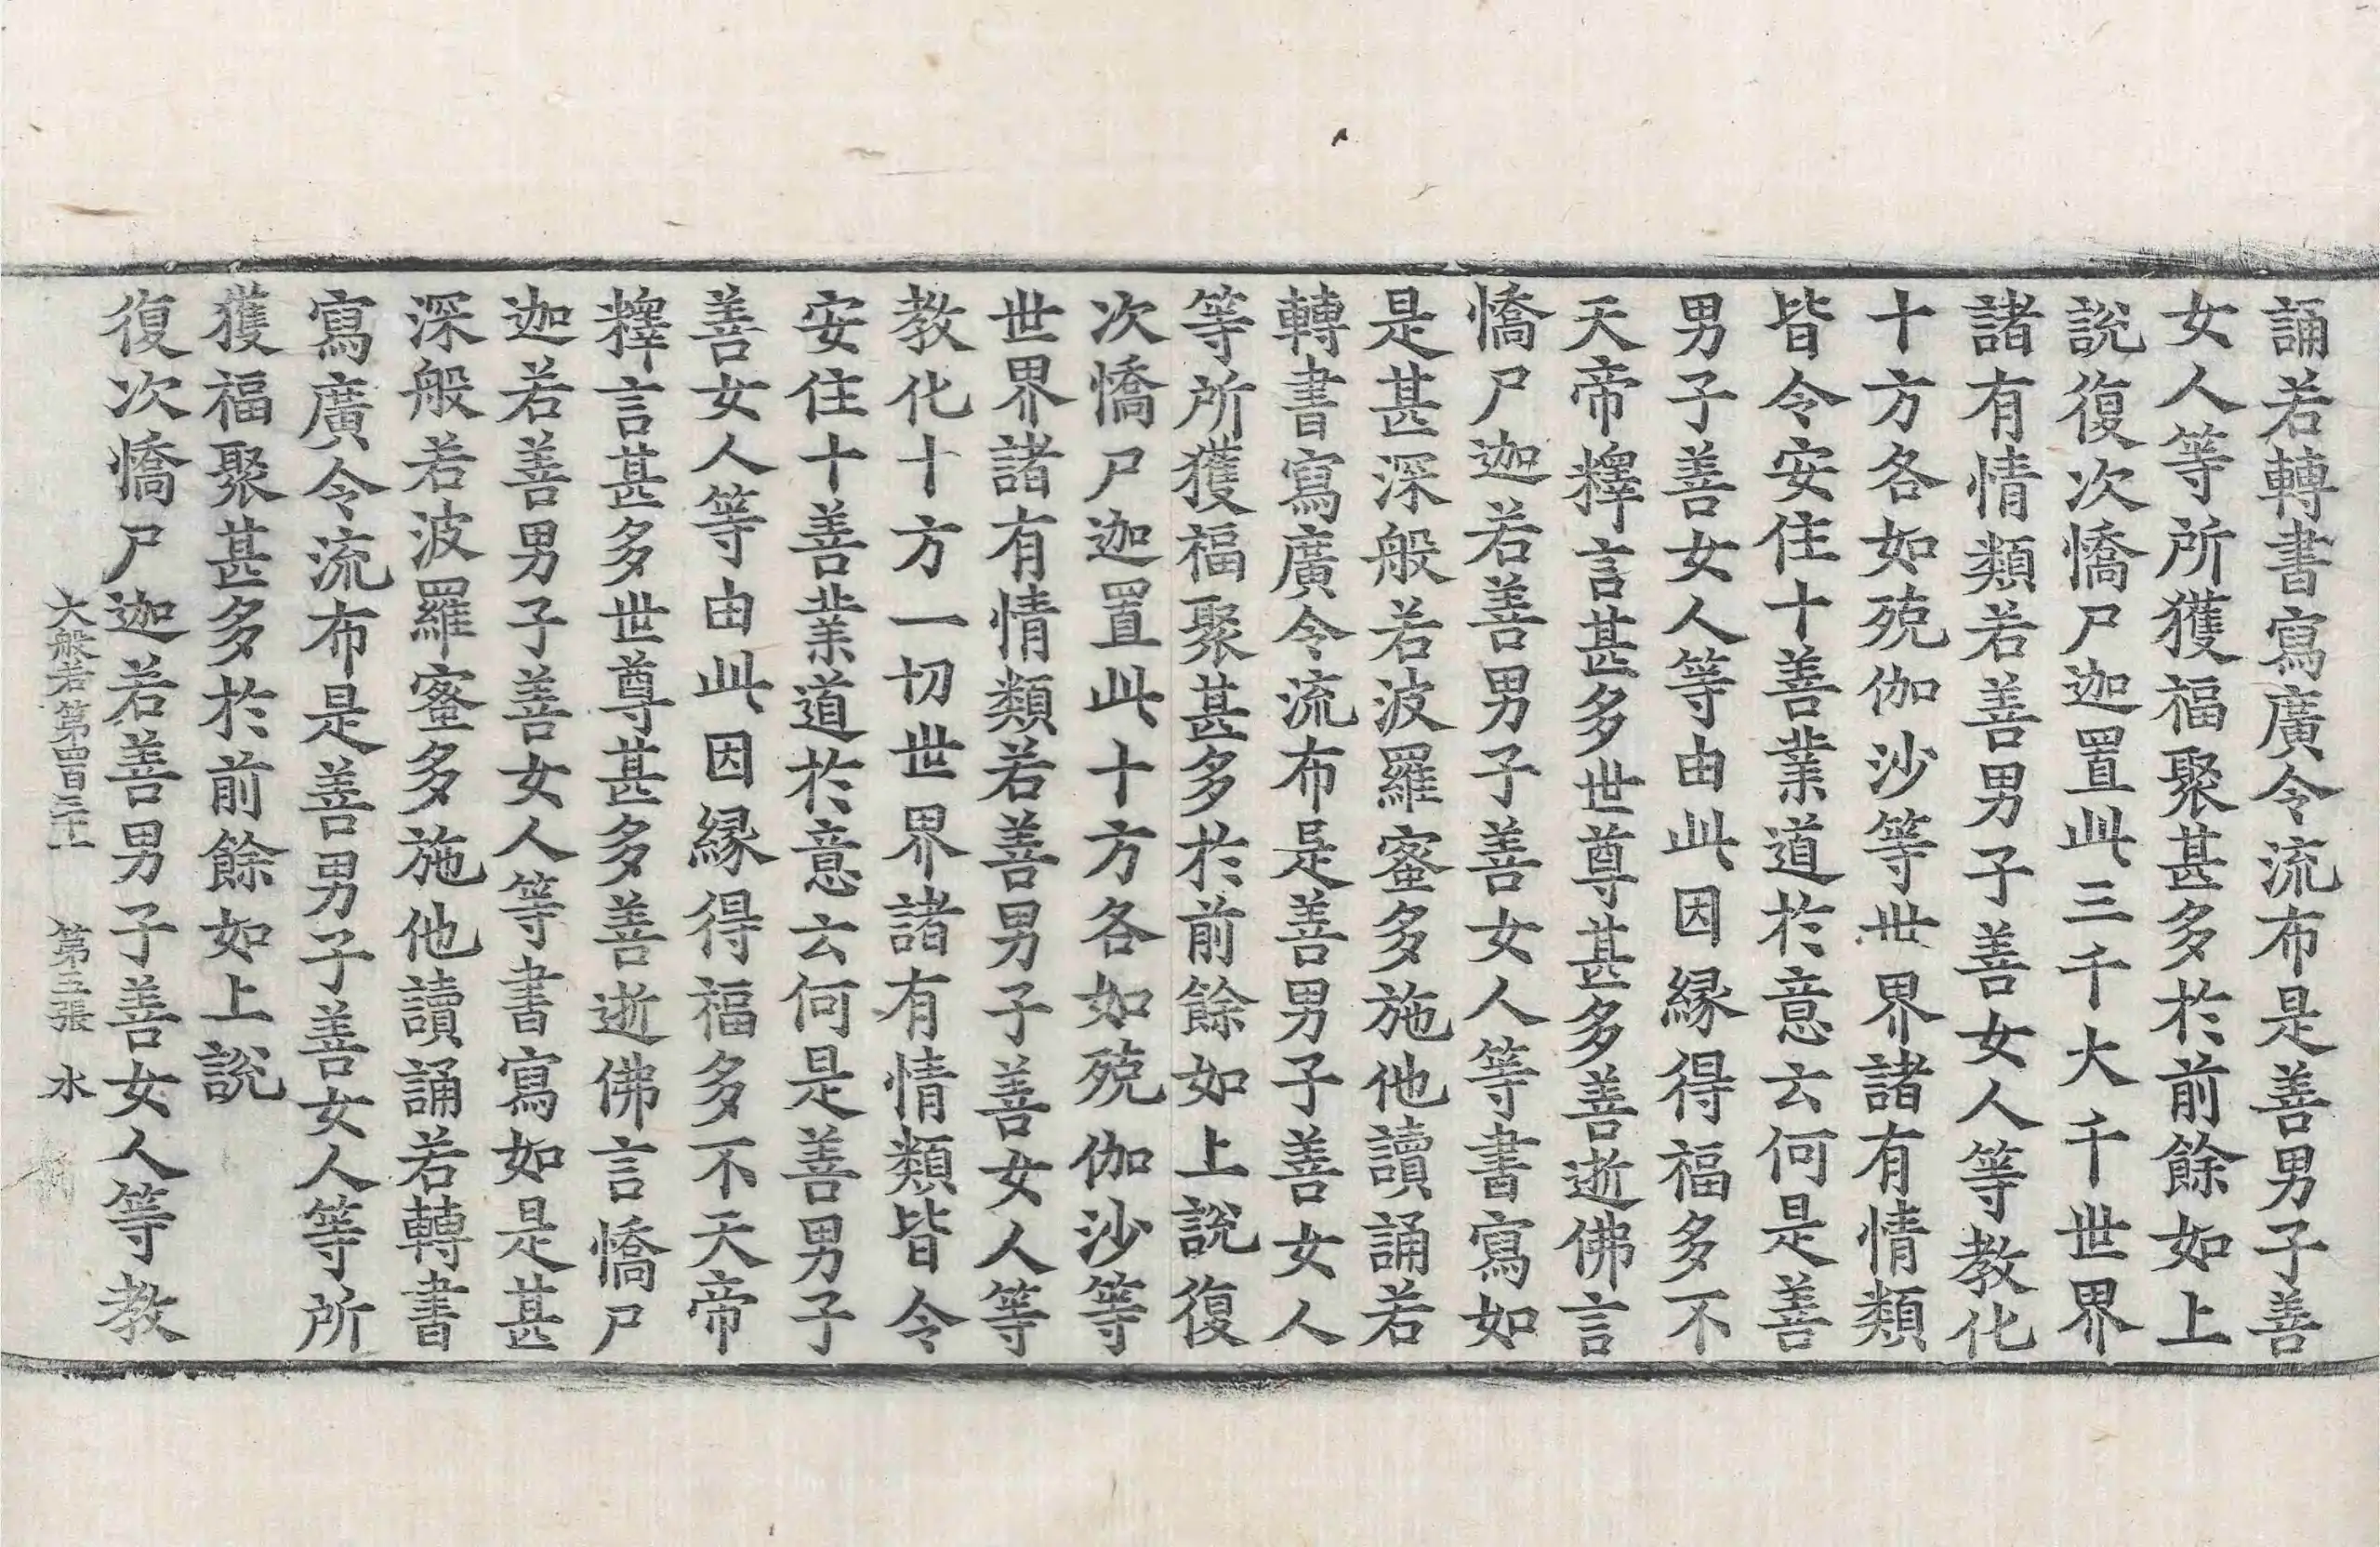 誦若轉書寫廣令流布是善男子善
女人等所獲福聚甚多於前餘如上
說復次憍尸迦置此三千大千世界
諸有情類若善男子善女人等教化
十方各如殑伽沙等世界諸有情類
皆令安住十善業道於意云何是善
男子善女人等由此因緣得福多不
天帝釋言甚多世尊甚多善逝佛言
憍尸迦若善男子善女人等書寫如
是甚深般若波羅蜜多施他讀誦若
轉書寫廣令流布是善男子善女人
等所獲福聚甚多於前餘如上說復
次憍尸迦置此十方各如殑伽沙等
世界諸有情類若善男子善女人等
教化十方一切世界諸有情類皆令
安住十善業道於意云何是善男子
善女人等由此因緣得福多不天帝
釋言甚多世尊甚多善逝佛言憍尸
迦若善男子善女人等書寫如是甚
深般若波羅蜜多施他讀誦若轉書
寫廣令流布是善男子善女人等所
獲福聚甚多於前餘如上說
復次憍尸迦若善男子善女人等教
大般若第四百三十一 第三張 水